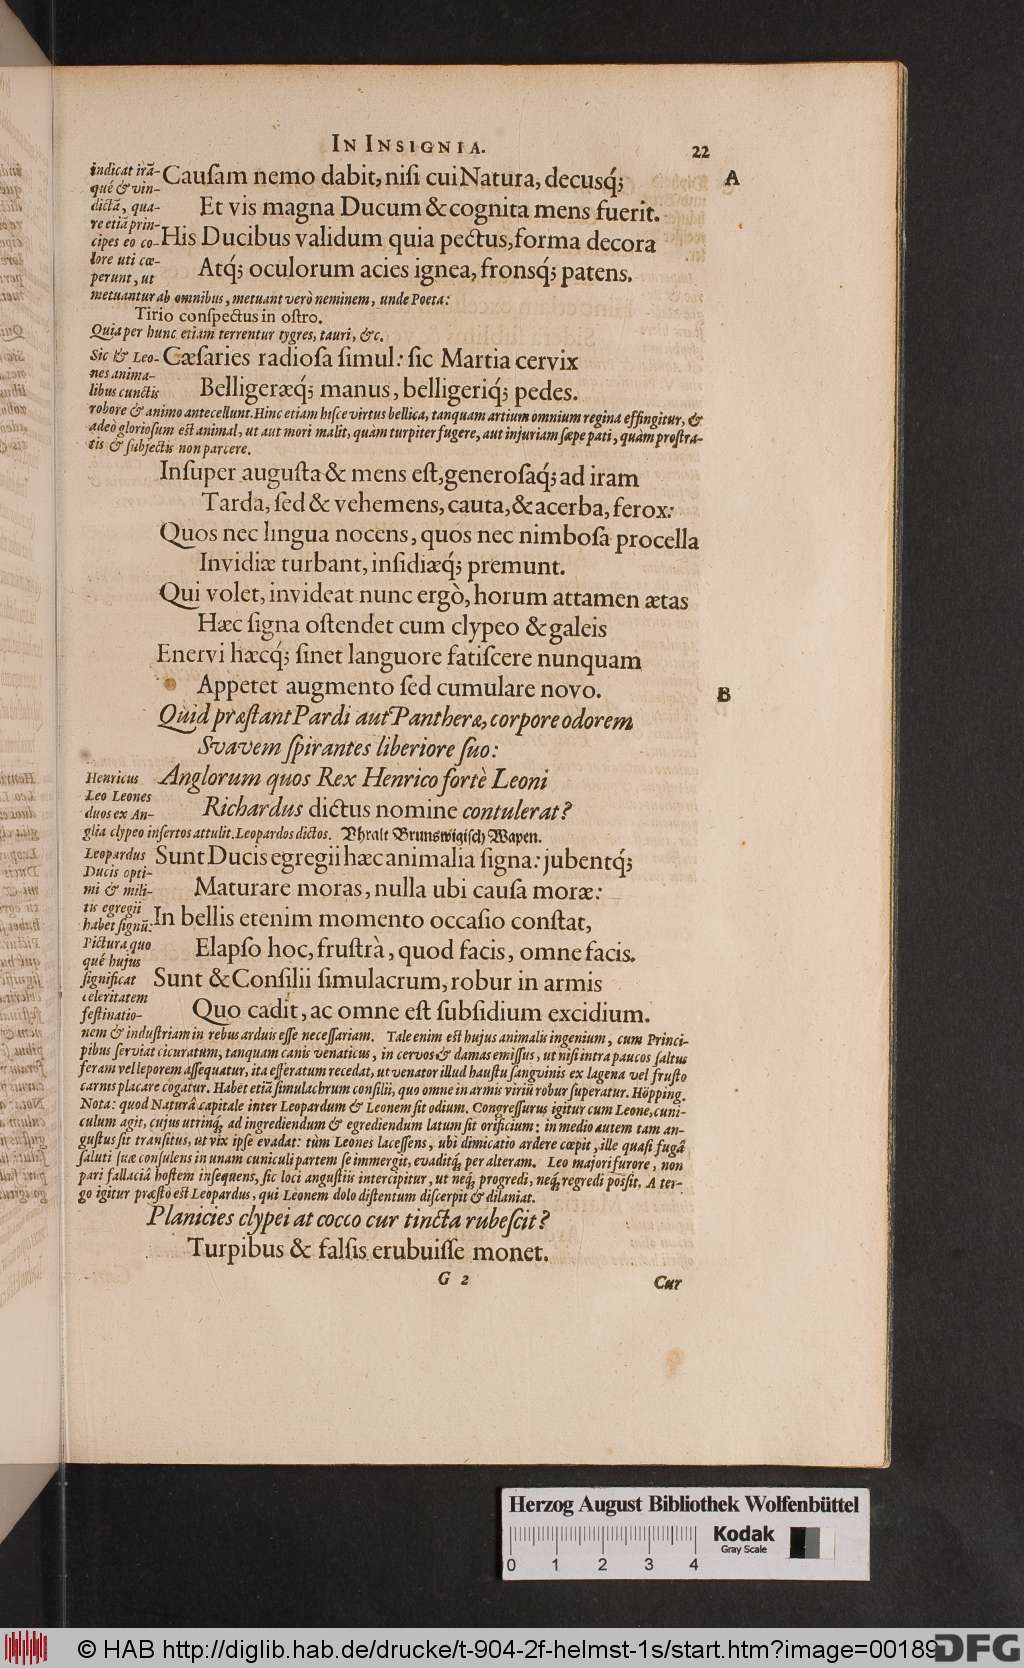 IN INSIGNIA.
22
A
indicat irã-
qué & vin-
dictã, qua-
re etiã prin-
cipes eo co-
lore uti cœ-
perunt, ut
Cauſam nemo dabit, niſi cui Natura, decusq́;
Et vis magna Ducum & cognita mens fuerit.
His Ducibus validum quia pectus, forma decora
Atq́; oculorum acies ignea, fronsq́; patens.
metuantur ab omnibus, metuant verò neminem, unde Poeta:
Tirio conſpectus in oſtro.
Quia per hunc etiam terrentur tygres, tauri, &c.
Sic & Leo-
nes anima-
libus cunctis
Cæſaries radioſa ſimul: ſic Martia cervix
Belligeræq́; manus, belligeriq́; pedes.
robore & animo antecellunt. Hinc etiam hiſce virtus bellica, tanquam artium omnium regina effingitur, &
adeò glorioſum eſt animal, ut aut mori malit, quàm turpiter fugere, aut injuriam ſæpe pati, quàm proſtra-
tis & ſubjectis non parcere.
Inſuper auguſta & mens eſt, generoſaq́; ad iram
Tarda, ſed & vehemens, cauta, & acerba, ferox:
Quos nec lingua nocens, quos nec nimboſa procella
Invidiæ turbant, inſidiæq́; premunt.
Qui volet, invideat nunc ergò, horum attamen ætas
Hæc ſigna oſtendet cum clypeo & galeis
Enervi hæcq́; ſinet languore fatiſcere nunquam
Appetet augmento ſed cumulare novo.
B
Quid præſtant Pardi aut Pantheræ, corpore odorem
Svavem ſpirantes liberiore ſuo:
Henricus
Leo Leones
duos ex An-
Anglorum quos Rex Henrico fortè Leoni
Richardus dictus nomine contulerat?
glia clypeo inſertos attulit. Leopardos dictos. Vhralt Brunswigiſch Wapen.
Leopardus
Ducis opti-
mi & mili-
tis egregii
habet ſignũ:
Pictura quo
qué hujus
ſignificat
celeritatem
feſtinatio-
Sunt Ducis egregii hæc animalia ſigna: jubentq́;
Maturare moras, nulla ubi cauſa moræ:
In bellis etenim momento occaſio conſtat,
Elapſo hoc, fruſtrà, quod facis, omne facis.
Sunt & Conſilii ſimulacrum, robur in armis
Quo cadit, ac omne eſt ſubſidium excidium.
nem & induſtriam in rebus arduis eſſe neceſſariam. Tale enim eſt hujus animalis ingenium, cum Princi-
pibus ſerviat cicuratum, tanquam canis venaticus, in cervos & damas emiſſus, ut niſi intra paucos ſaltus
feram vel leporem aſſequatur, ita efferatum recedat, ut venator illud hauſtu ſanguinis ex lagena vel fruſto
carnis placare cogatur. Habet etiã ſimulachrum conſilii, quo omne in armis viriũ robur ſuperatur. Höpping.
Nota: quod Naturâ capitale inter Leopardum & Leonem ſit odium. Congreſſurus igitur cum Leone, cuni-
culum agit, cujus utrinq́; ad ingrediendum & egrediendum latum ſit orificium: in medio autem tam an-
guſtus ſit tranſitus, ut vix ipſe evadat: tùm Leones laceſſens, ubi dimicatio ardere cœpit, ille quaſi fugâ
ſaluti ſuæ conſulens in unam cuniculi partem ſe immergit, evaditq́; per alteram. Leo majori furore, non
pari fallaciâ hoſtem inſequens, ſic loci anguſtiis intercipitur, ut neq́; progredi, neq́; regredi poſſit. A ter-
go igitur præſto eſt Leopardus, qui Leonem dolo diſtentum diſcerpit & dilaniat.
Planicies clypei at cocco cur tincta rubeſcit?
Turpibus & falſis erubuiſſe monet.
G 2
Cur
Herzog August Bibliothek Wolfenbüttel
Kodak
Gray Scale
0 1 2 3 4
© HAB http://diglib.hab.de/drucke/t-904-2f-helmst-1s/start.htm?image=00189
DFG